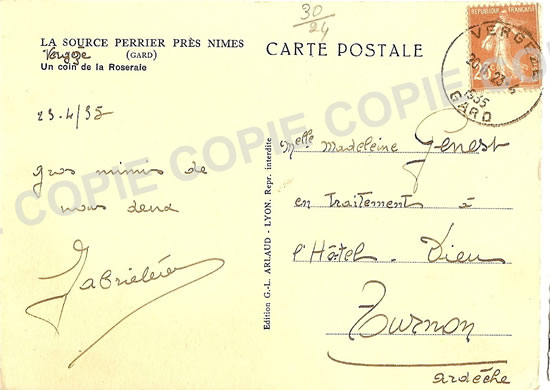 LA SOURCE PERRIER PRÈS NIMES
Vergèze
(GARD)
Un coin de la Roseraie
23.4/35
gros mimis de
nous deux
30/24
CARTE POSTALE
RÉPUBLIQUE FRANÇAISE
VERGEZE
1935
GARD
Melle Madeleine Genest
en traitement à
l'Hôtel-Dieu
Turnon
Ardèche
Edition G.-L. ARLAUD - LYON. Repr. interdite
COPIE COPIE COPIE COPIE